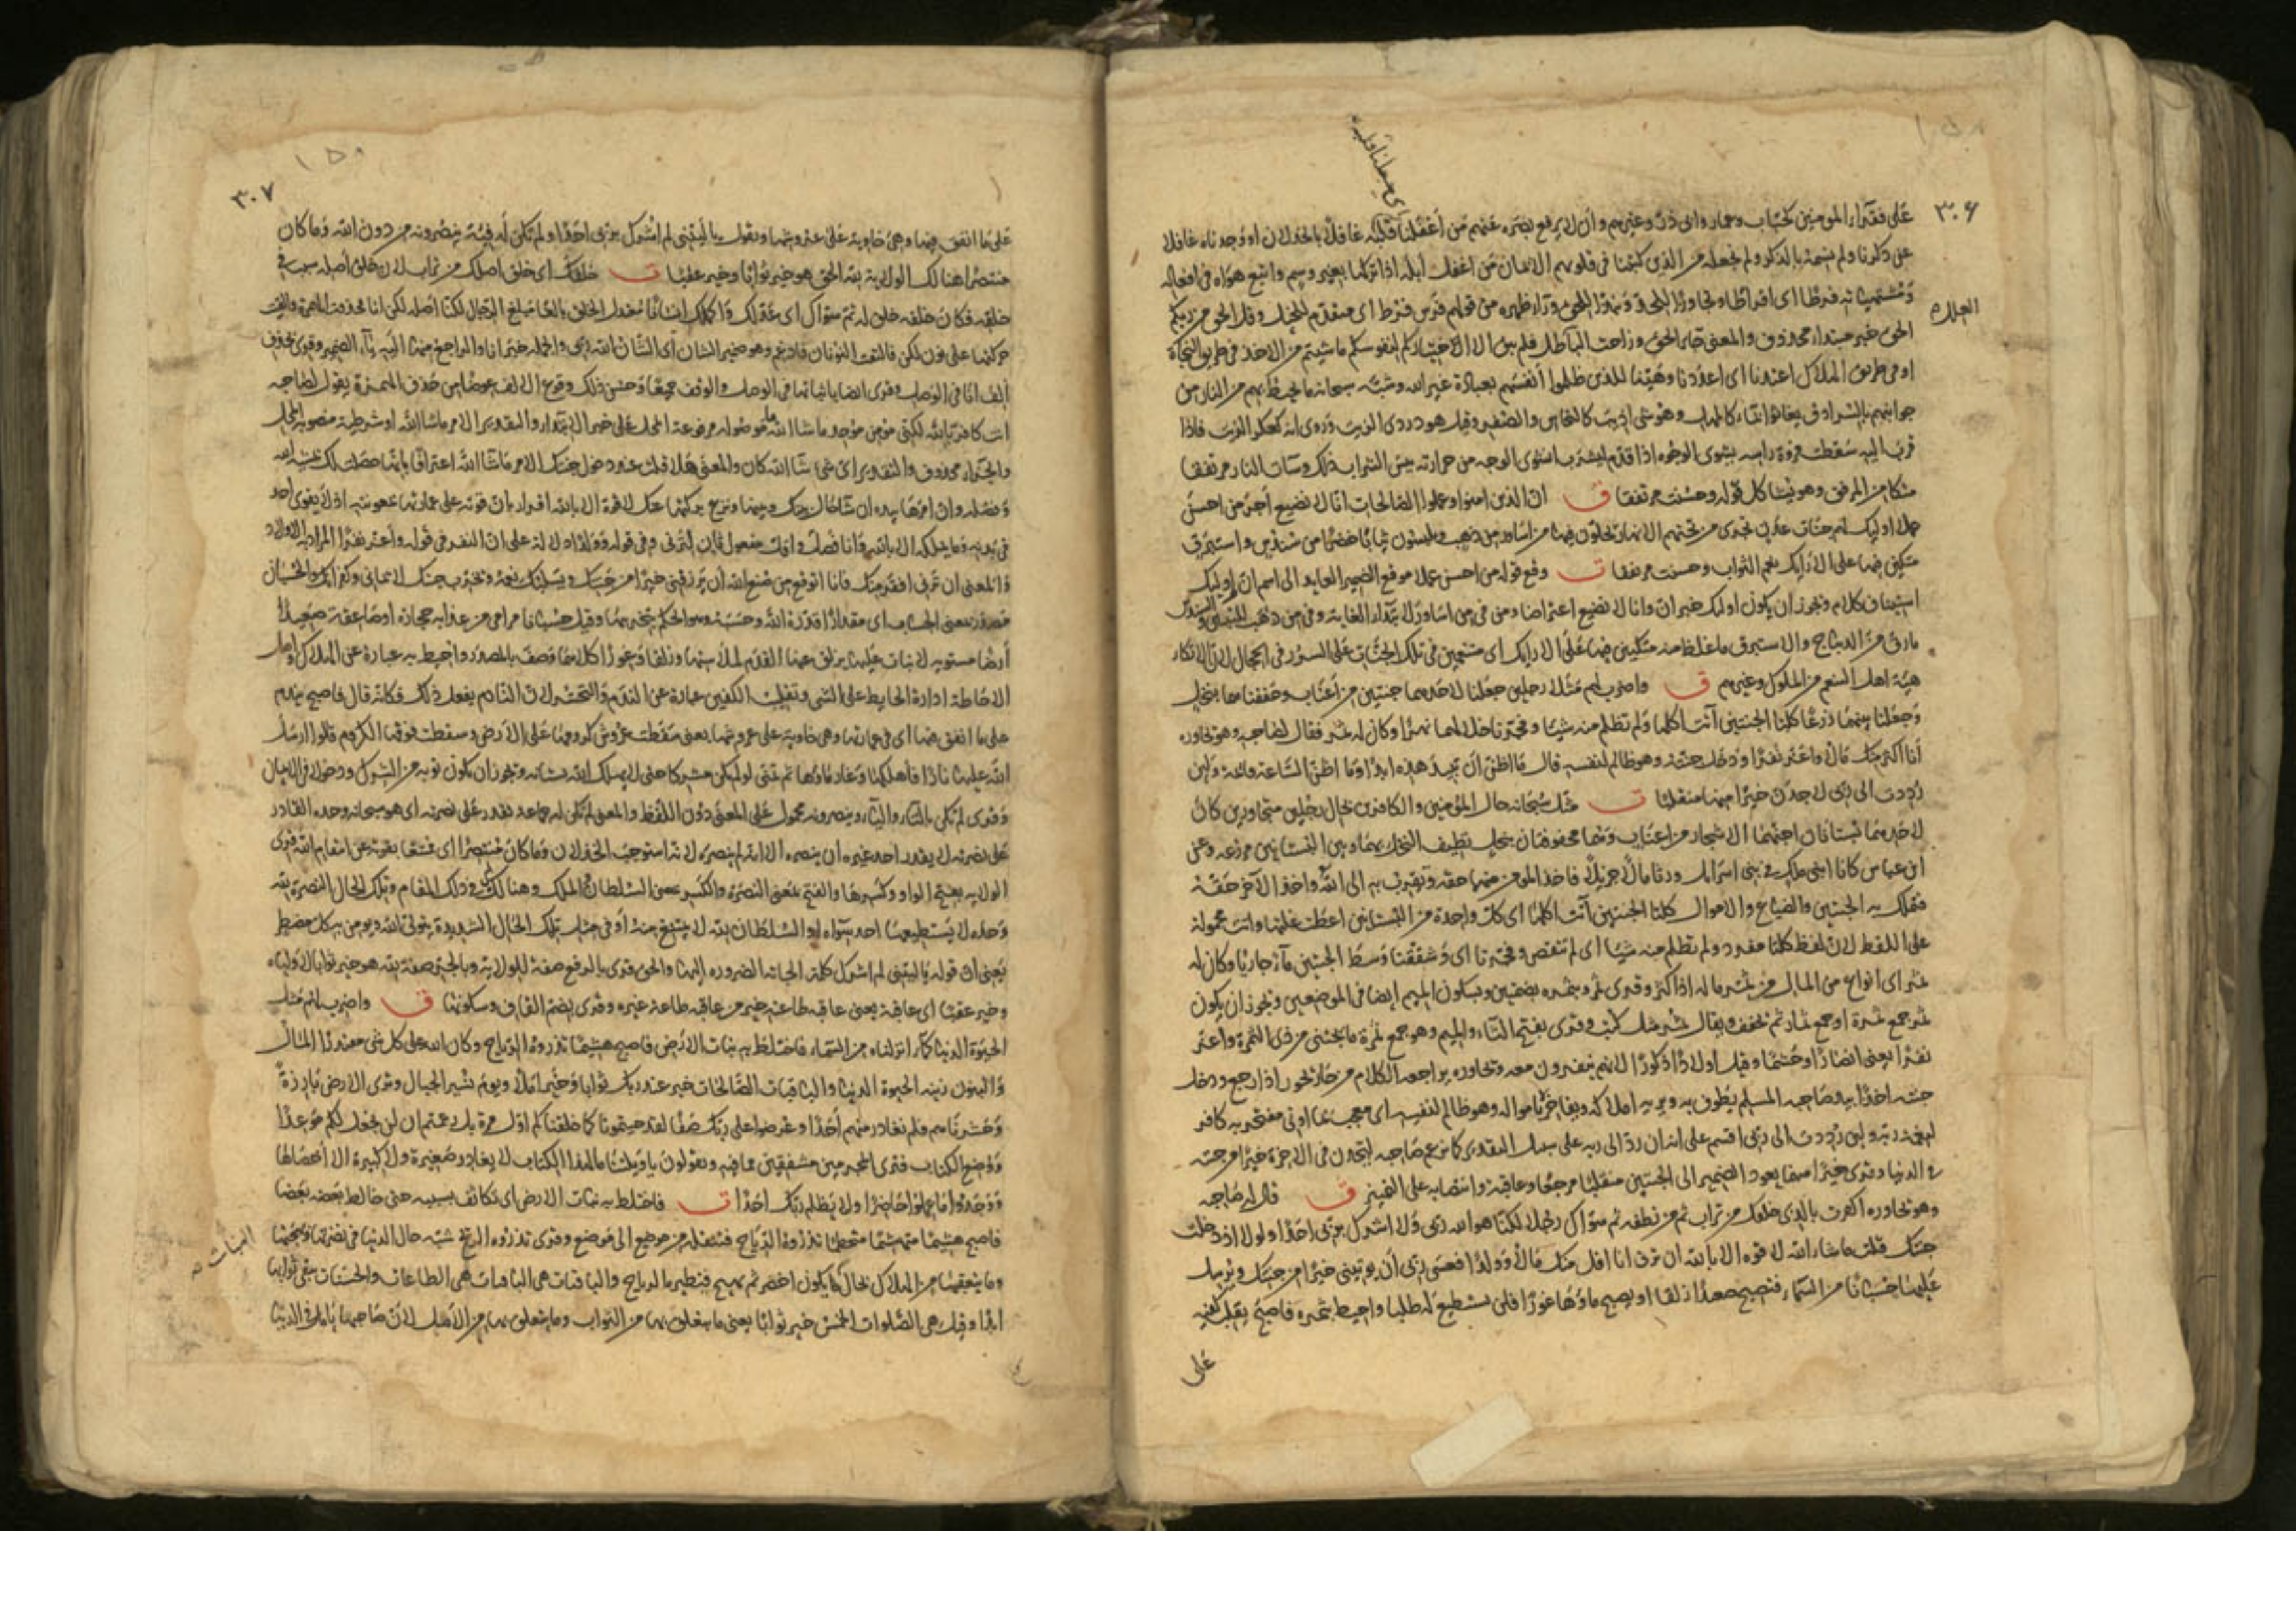 ٣٠۶
على فقراء المومنين كخباب وعمار وابي ذر وغيرهم وان لا يرفع بصره عنهم من أغفلنا قلبه غافلا بالخذلان او وجدناه غافلا
عن ذكرنا ولم نسمه بالذكر ولم نجعله من الذين كتبنا في قلوبهم الايمان من اغفل ابله اذا تركها بغير وسم واتبع هواه في افعاله
فرطا اى افراطا وتجاوزا للحق ونبذا للحق وراء ظهره من قولهم فرس فرط اى متقدم للخيل وقل الحق من ربكم
الحق خبر مبتدا محذوف والمعنى جاء الحق وزاحت الباطل فلم يبق الا اختياركم لنفوسكم ما شيتم من الاخذ في طريق النجاة
او في طريق الهلاك اعتدنا اى اعددنا وهيئنا للذين ظلموا أنفسهم بعبادة غير الله وشبه سبحانه ما يحيط بهم من النار من
جوانبهم بالسرادق يغاثوا بماء كالمهل وهو شى اذيب كالنحاس والصفر وقيل هو دردى الزيت وروى انه كعكر الزيت فاذا
قرب اليه سقطت فروة راسه يشوى الوجوه اذا قدم ليشرب انشوى الوجه من حرارته بيس الشراب ذلك وساءت النار مرتفقا
متكا من المرفق وهو يشاكل قوله وحسنت مرتفقا ق ان الذين امنوا وعملوا الصالحات انا لا نضيع أجر من احسن
عملا اوليك لهم جنات عدن تجرى من تحتهم الانهار يحلون فيها من اساور من ذهب ويلبسون ثيابا خضرا من سندس واستبرق
متكين فيها على الارايك نعم الثواب وحسنت مرتفقا ت وقع قوله من احسن عملا موقع الضمير العايد الى اسم ان اوليك
استيناف كلام ويجوز ان يكون اوليك خبر ان وانا لا نضيع اعتراضا ومن في من اساور لابتداء الغاية وفي من ذهب للتبيين والسندس
مارق من الديباج والاستبرق ما غلظ منه متكين فيها على الارايك اى متنعمين في تلك الجنات على السرر في الحجال لان الاتكاء
هيئة اهل التنعم من الملوك وغيرهم ق واضرب لهم مثلا رجلين جعلنا لاحدهما جنتين من أعناب وحففناهما بنخل
وجعلنا بينهما زرعا كلتا الجنتين آتت اكلها ولم تظلم منه شيئا وفجرنا خلالهما نهرا وكان له ثمر فقال لصاحبه وهو يحاوره
أنا اكثر منك مالا واعز نفرا ودخل جنته وهو ظالم لنفسه قال ما اظن ان تبيد هذه ابدا وما اظن الساعة قائمة ولئن
رددت الى ربى لاجدن خيرا منها منقلبا ت مثل سبحانه حال المؤمنين والكافرين بحال رجلين متجاورين كان
لاحدهما بستانان اجنهما الاشجار من اعناب وهما محفوفتان بنخل يطيف النخل بهما وبين البستانين مزرعه وعن
ابن عباس كانا ابنى ملك في بنى اسرايل ورثا مالا جزيلا فاخذ المومن منهما حقه وتقرب به الى الله واخذ الآخر حقه
فتملك به الجنتين والضياع والاموال كلتا الجنتين آتت اكلها اى كل واحدة من البستانين اعطت غلتها وآتت محمولة
على اللفظ لان لفظ كلتا مفرد ولم تظلم منه شيئا اى لم تنقص وفجرنا اى وشققنا وسط الجنتين ماء جاريا وكان له
ثمر اى انواع من المال من ثمر ماله اذا كثر وقرى ثمر وبثمره بضمتين وبسكون الميم ايضا في الموضعين ويجوز ان يكون
ثمر جمع ثمرة او جمع ثمار ثم يخفف ويقال ثمر مثل كتب وقرى بفتح الثاء والميم وهو جمع ثمرة ما يجتنى من ذى الثمرة واعز
نفرا يعنى انصارا وحشما وقيل اولادا ذكورا لانهم ينفرون معه ويحاوره يراجعه الكلام من حار يحور اذا رجع ودخل
جنته اخذا بيد صاحبه المسلم يطوف به ويريه املاكه ويفاخره باموالة وهو ظالم لنفسه اى معجب بما اوتى مفتخر به كافر
لنعمة ربه ولين رددت الى ربى اقسم على انه ان رد الى ربه على سبيل التقدير كما زعم صاحبه ليجدن في الاخرة خيرا من جنته
في الدنيا وقرى خيرا منهما يعود الضمير الى الجنتين منقلبا مرجعا وعاقبة وانتصابه على التمييز ق قال له صاحبه
وهو يحاوره اكفرت بالذى خلقك من تراب ثم من نطفه ثم سواك رجلا لكنا هو الله ربى ولا اشرك بربى احدا ولولا اذ دخلت
جنتك قلت ما شاء الله لا قوه الا بالله ان ترن انا اقل منك مالا وولدا فعسى ربى أن يوتينى خيرا من جنتك ويرسل
عليها حسبانا من السماء فتصبح صعيدا زلقا او يصبح ماؤها غورا فلن تستطيع له طلبا واحيط بثمره فاصبح يقلب كفيه
على
٣٠٧
على ما انفق فيها وهى خاوية على عروشها ويقول يا ليتنى لم اشرك بربى احدا ولم تكن له فئة ينصرونه من دون الله وما كان
منتصرا هنالك الولاية لله الحق هو خير ثوابا وخير عقبا ت خلقك اى خلق اصلك من تراب لان خلق أصله سبب في
خلقه فكان خلقه خلق له ثم سواك اى عدلك واكملك انسانا بالغا مبلغ الرجال لكنا اصله لكن انا فحذفت الهمزة والقيت
حركتها على نون لكن فالتقت النونان فادغم وهو ضمير الشان اى الشان الله ربى والجملة خبر انا والراجع منها اليه ياء الضمير وقرى بحذف
الف انا في الوصل وقرى ايضا باثباتها في الوصل والوقف جميعا وحسن ذلك وقوع الالف عوضا من حذف الهمزة يقول لصاحبه
انت كافر بالله لكنى مومن موحد ما شاء الله ما موصوله مرفوعة المحل على خبر الابتداء والتقدير الامر ما شاء الله او شرطية منصوبة المحل
والجزاء محذوف والتقدير اى شئ شاء الله كان والمعنى هلا قلت عند دخول جنتك الامر ما شاء الله اعترافا بانها حصلت لك بمشية الله
وفضله وان امرها بيده ان شاء حال بينك وبينها ونزع بركتها عنك لا قوة الا بالله اقرار بان قوته على عمارتها بمعونته اذ لا يقوى احد
في بدنه وما يملكه الا بالله وانا فصل واقل مفعول ثان لترنى وفي قوله وولدا دلالة على ان النفر في قوله واعز نفرا المراد به الاولاد
والمعنى ان ترنى افقر منك فانا اتوقع من صنع الله أن يرزقنى خيرا من جنتك ويسلبك نعمه ويخرب جنتك لايمانى وكفرانك والحسبان
مصدر بمعنى الحساب اى مقدارا قدره الله وحسبه وهو الحكم بتخريبها وقيل حسبانا مرامى من عذابه حجارة او صاعقة صعيدا
أرضا مستويه لا نبات عليها يزلق عنها القدم لملاستها وزلقا وغورا كلاهما وصف بالمصدر واحيط به عبارة عن الهلاك واصل
الاحاطة ادارة الحايط على الشى وتقليب الكفين عبارة عن الندم والتحسر لان النادم يفعل ذلك فكانه قال فاصبح يندم
على ما انفق فيها اى في عمارتها وهى خاوية على عروشها يعنى سقطت عروش كرومها على الارض وسقطت فوقها الكروم قالوا ارسل
الله عليها نارا فأهلكها وغار ماؤها ثم تمنى لو لم يكن مشركا حتى لا يهلك الله بستانه ويجوز ان يكون توبه من الشرك ودخولا في الايمان
وقرى لم تكن بالتاء والياء وينصرونه محمول على المعنى دون اللفظ والمعنى لم تكن له جماعة تقدر على نصرته اى هو سبحانه وحده القادر
على نصرته لا يقدر احد غيره أن ينصره الا انه لم ينصره لانه استوجب الخذلان وما كان منتصرا اى ممتنعا بقوته عن انتقام الله قرى
الولايه بفتح الواو وكسرها والفتح بمعنى النصرة والكسر بمعنى السلطان والملك وهنالك في ذلك المقام وتلك الحال النصرة لله
وحده لا يستطيعها احد سواه او السلطان لله لا يمتنع منه او في مثل تلك الحال الشديدة يتولى الله ويومن به كل مضطر
يعنى ان قوله يا ليتنى لم اشرك كلمة الجاته الضروره اليها والحق قرى بالرفع صفة للولاية وبالجر صفة لله هو خير ثوابا لاوليائه
وخير عقبا اى عاقبة يعنى عاقبه طاعته خير من عاقبه طاعة غيره وقرى بضم القاف وسكونها ق واضرب لهم مثل
الحيوة الدنيا كماء انزلناه من السماء فاختلط به نبات الارض فاصبح هشيما تذروه الرياح وكان الله على كل شى مقتدرا المال
والبنون زينه الحيوة الدنيا والباقيات الصالحات خير عند ربك ثوابا وخير املا ويوم نسير الجبال وترى الارض بارزة
وحشرناهم فلم نغادر منهم أحدا وعرضوا على ربك صفا لقد جيتمونا كما خلقناكم اول مرة بل زعمتم ان لن نجعل لكم موعدا
ووضع الكتاب فترى المجرمين مشفقين مما فيه ويقولون يا ويلتنا ما لهذا الكتاب لا يغادر صغيرة ولا كبيرة الا أحصاها
ووجدوا ما عملوا حاضرا ولا يظلم ربك احدا ت فاختلط به نبات الارض اى تكاثف بسببه حتى خالط بعضه بعضا
فاصبح هشيما متهشما متحطما تذروه الرياح فتنقله من موضع الى موضع وقرى تذروه الريح شبه حال الدنيا في نضرتها وبهجتها
وما يتعقبها من الهلاك بحال ما يكون اخضر ثم يهيج فتطيره الرياح والباقيات هى الطاعات والحسنات يبقى ثوابها
النبات
ابدا وقيل هى الصلوات الخمس خير ثوابا يعنى ما يتعلق بها من الثواب وما يتعلق بها من الامل لان صاحبها يامل في الدنيا